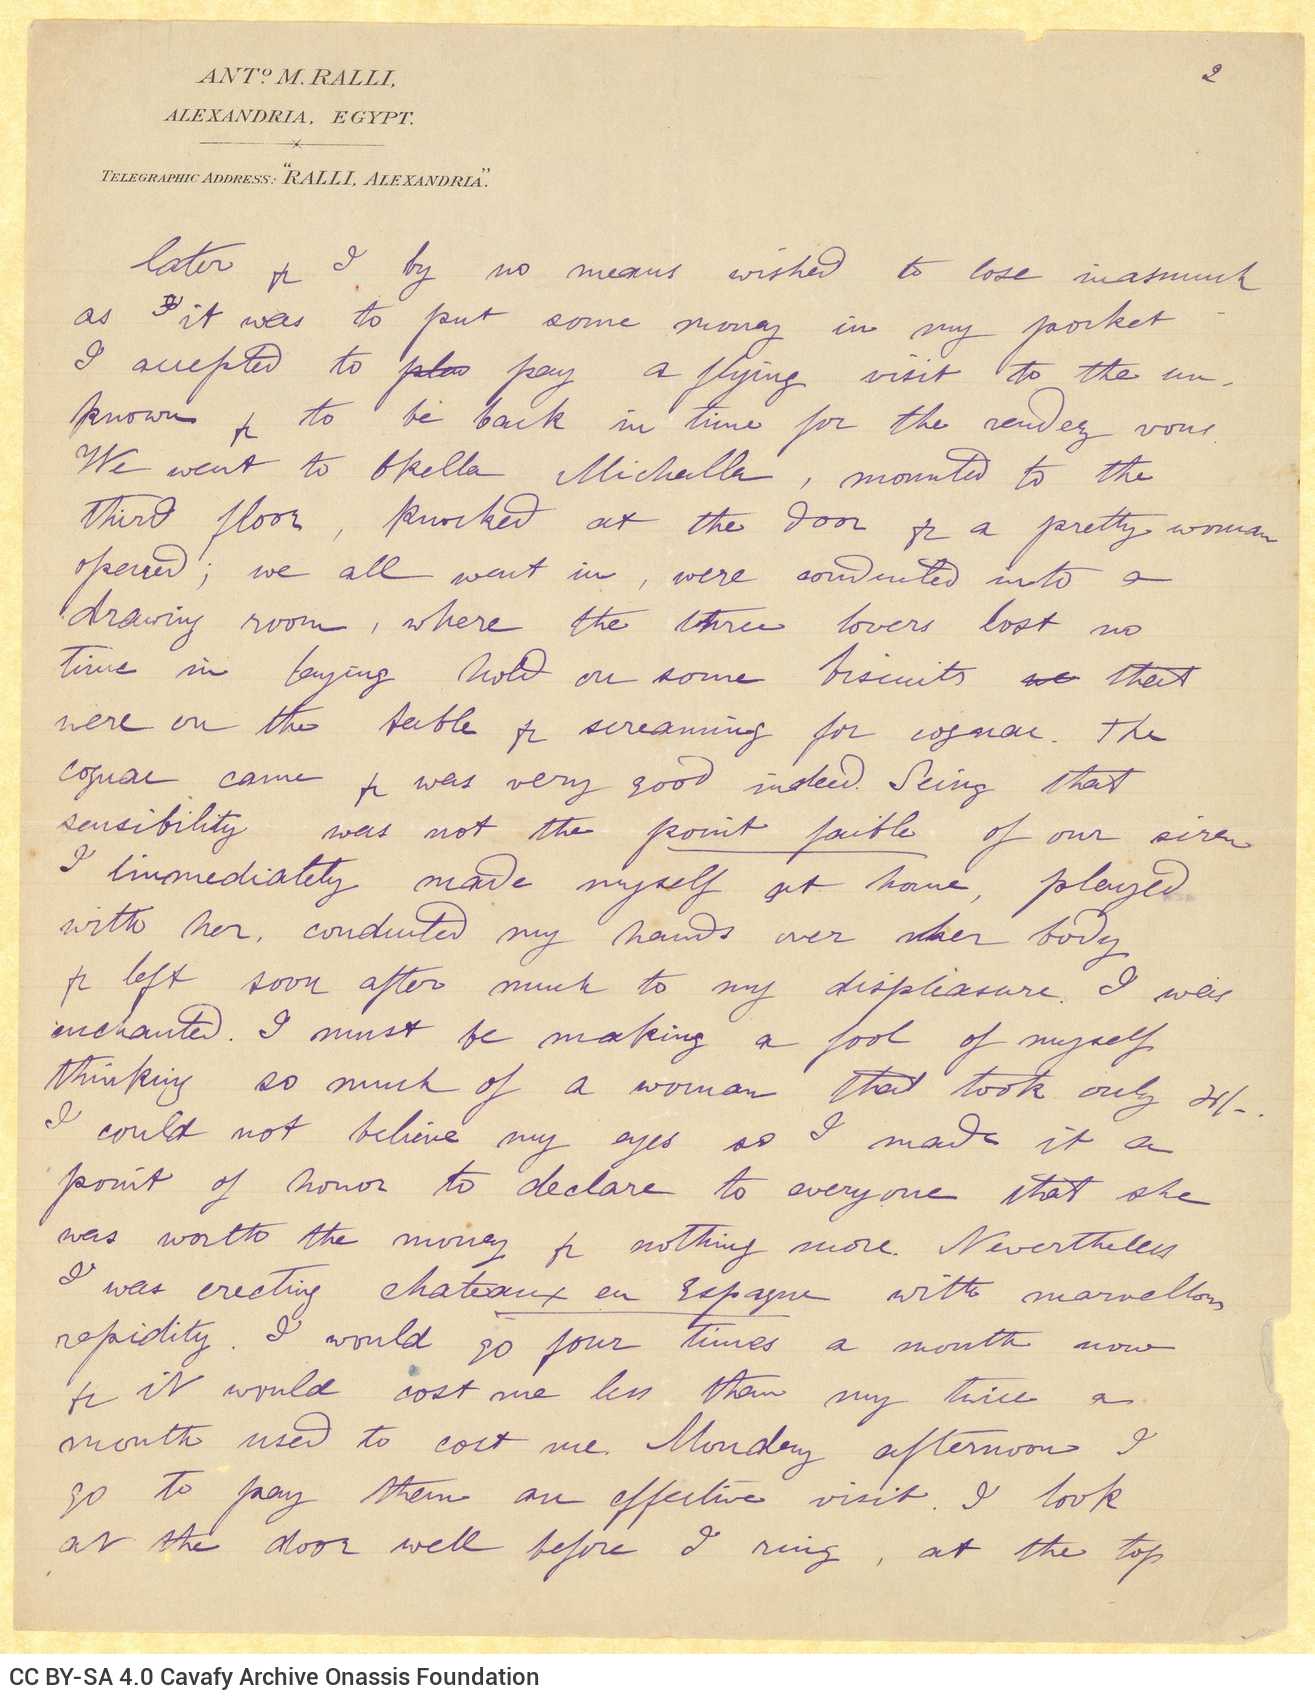 2
ANTº M. RALLI,
ALEXANDRIA, EGYPT.
TELEGRAPHIC ADDRESS: "RALLI, ALEXANDRIA".
later & I by no means wished to lose inasmuch
as it was to put some money in my pocket
I accepted to pay a flying visit to the un-
known & to be back in time for the rendez vous.
We went to Okella Michalla, mounted to the
third floor, knocked at the door & a pretty woman
opened; we all went in, were conducted into a
drawing room, where the three lovers lost no
time in laying hold on some biscuits that
were on the table & screaming for cognac. The
cognac came & was very good indeed. Seing that
sensibility was not the point faible of our siren
I immediately made myself at home, played
with her, conducted my hands over her body
& left soon after much to my displeasure. I was
enchanted. I must be making a fool of myself
thinking so much of a woman that took only
I could not believe my eyes so I made it a
point of honor to declare to everyone that she
was worth the money & nothing more. Nevertheless
I was erecting chateaux en Espagne with marvellous
rapidity. I would go four times a month now
& it would cost me less than my twice a
month used to cost me. Monday afternoon I
go to pay them an effective visit. I look
at the door well before I ring, at the top
CC BY-SA 4.0 Cavafy Archive Onassis Foundation